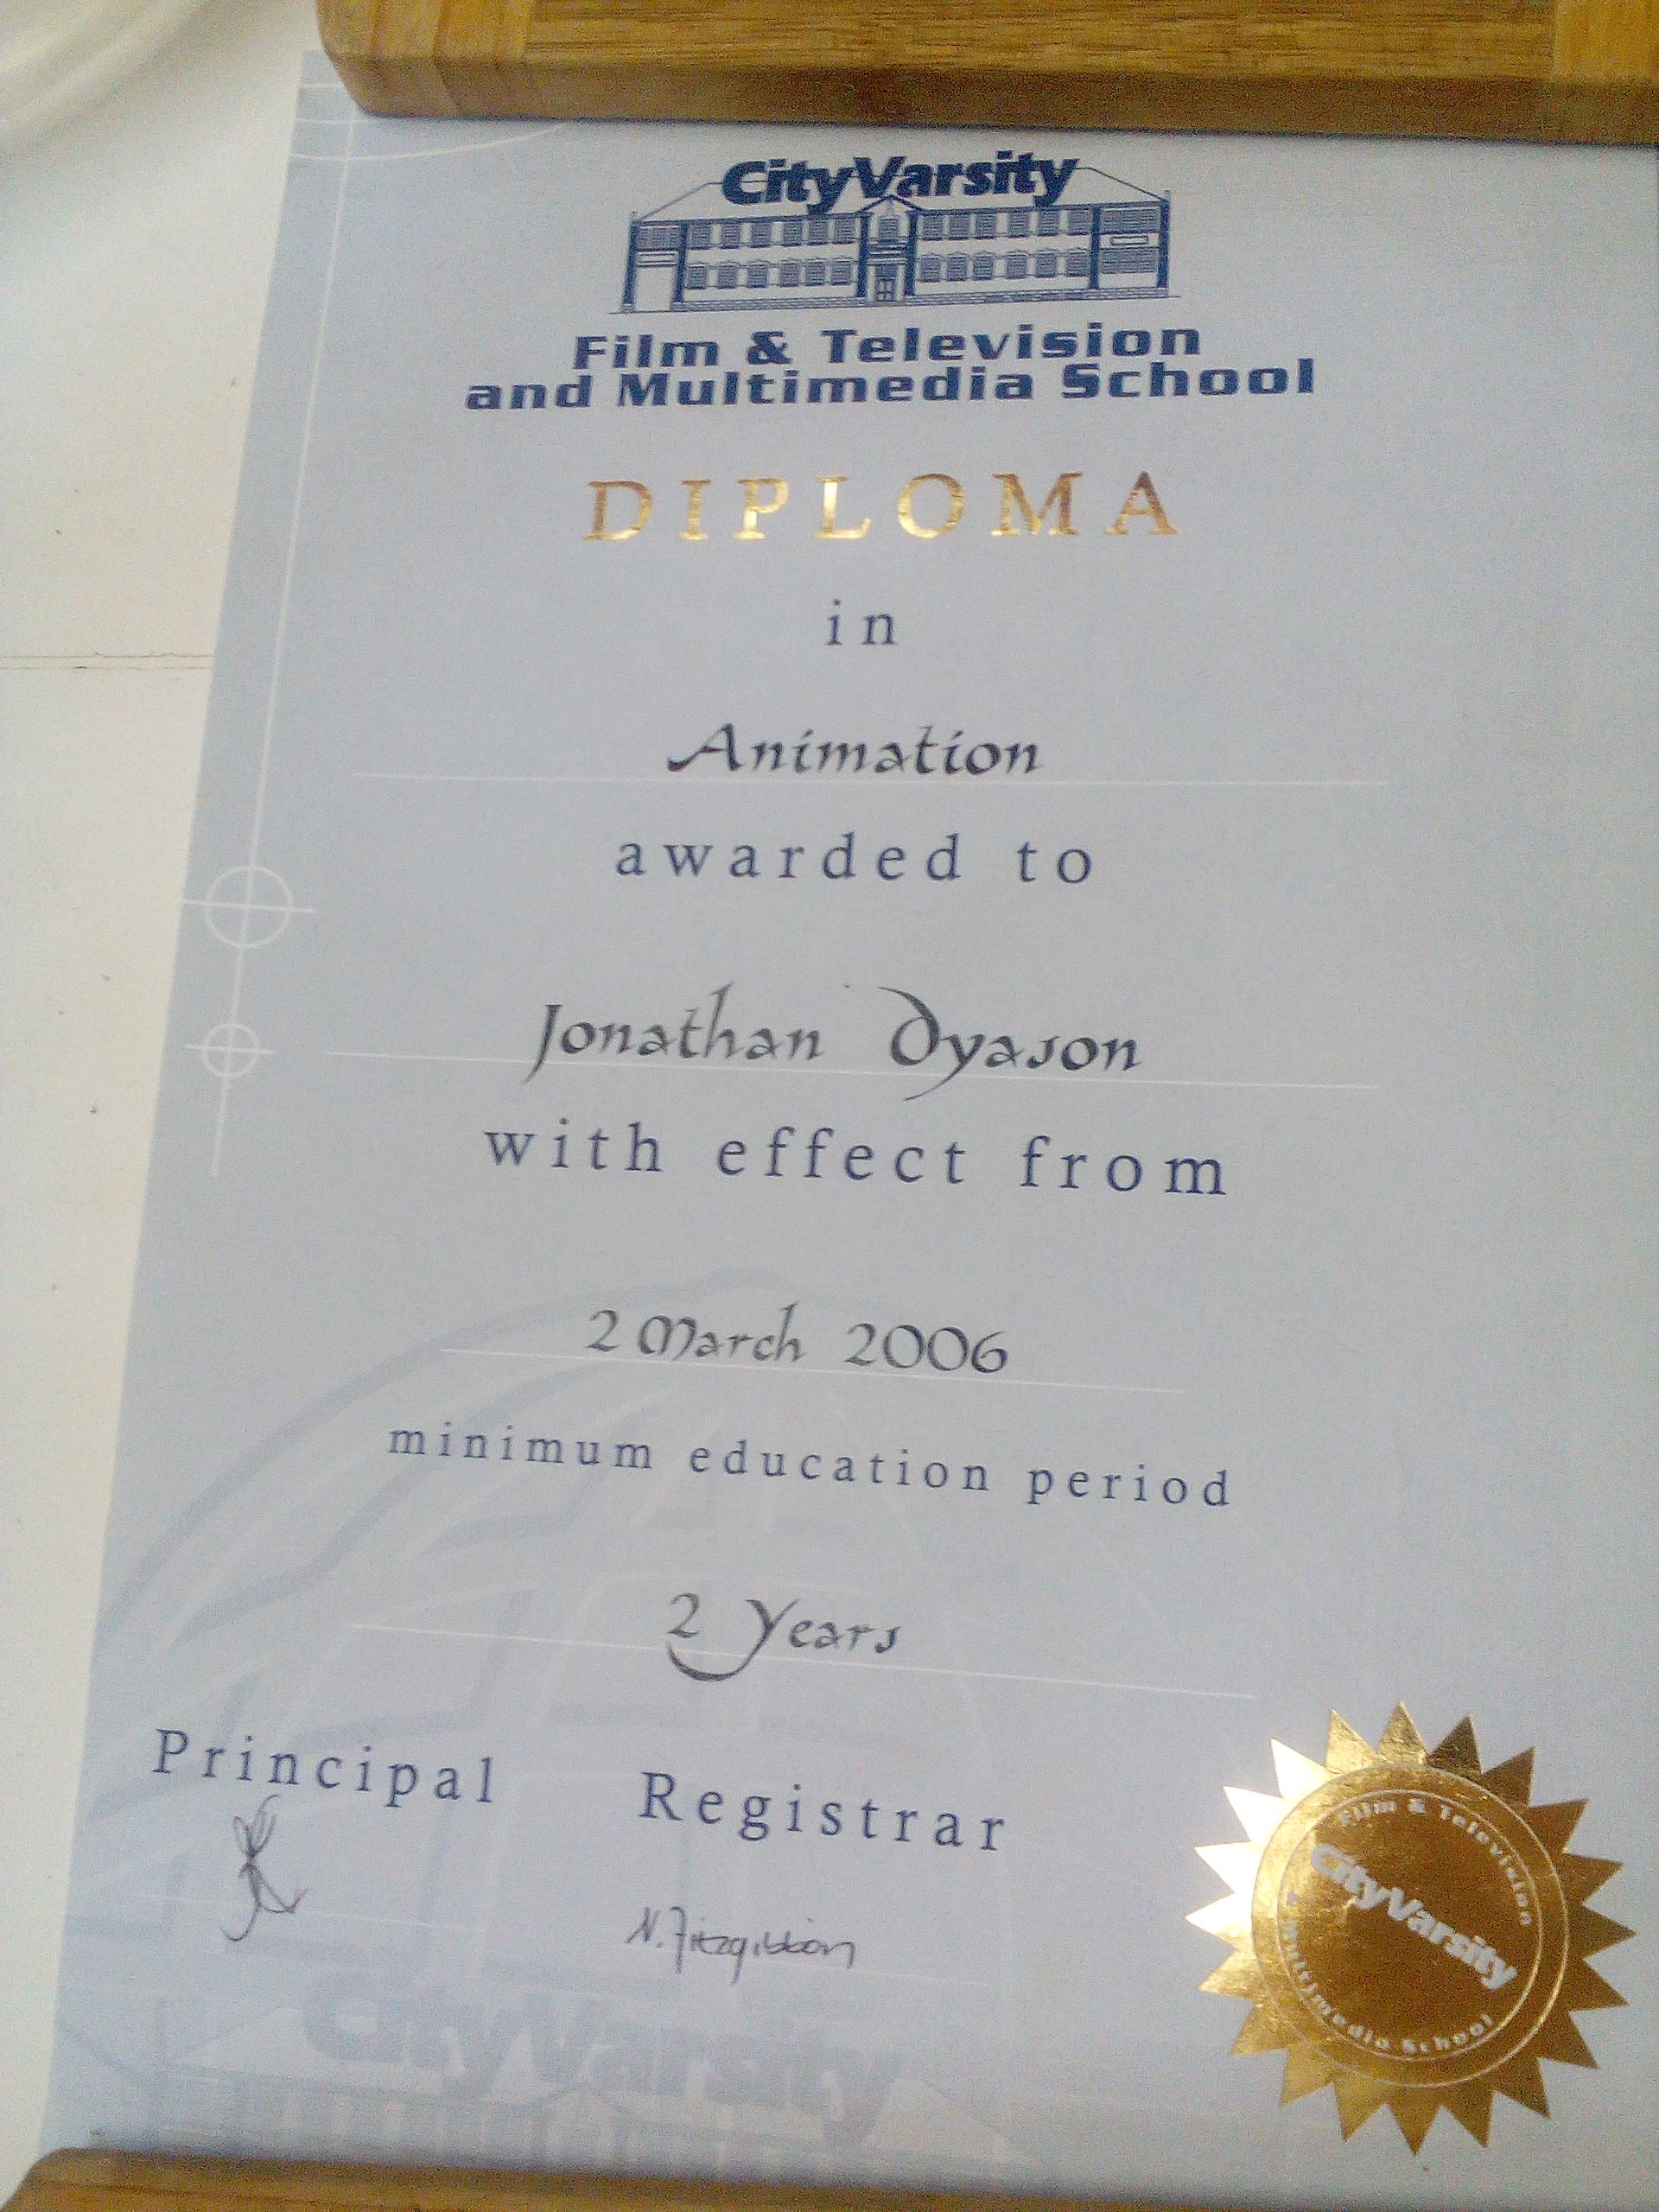 CityVarsity
Film & Television
and Multimedia School
DIPLOMA
in
Animation
awarded to
Jonathan Dyason
with effect from
2 March 2006
minimum education period
2 Years
Principal Registrar
N. Fitzgibbon
Film & Television
CityVarsity
& Multimedia School
CityVarsity